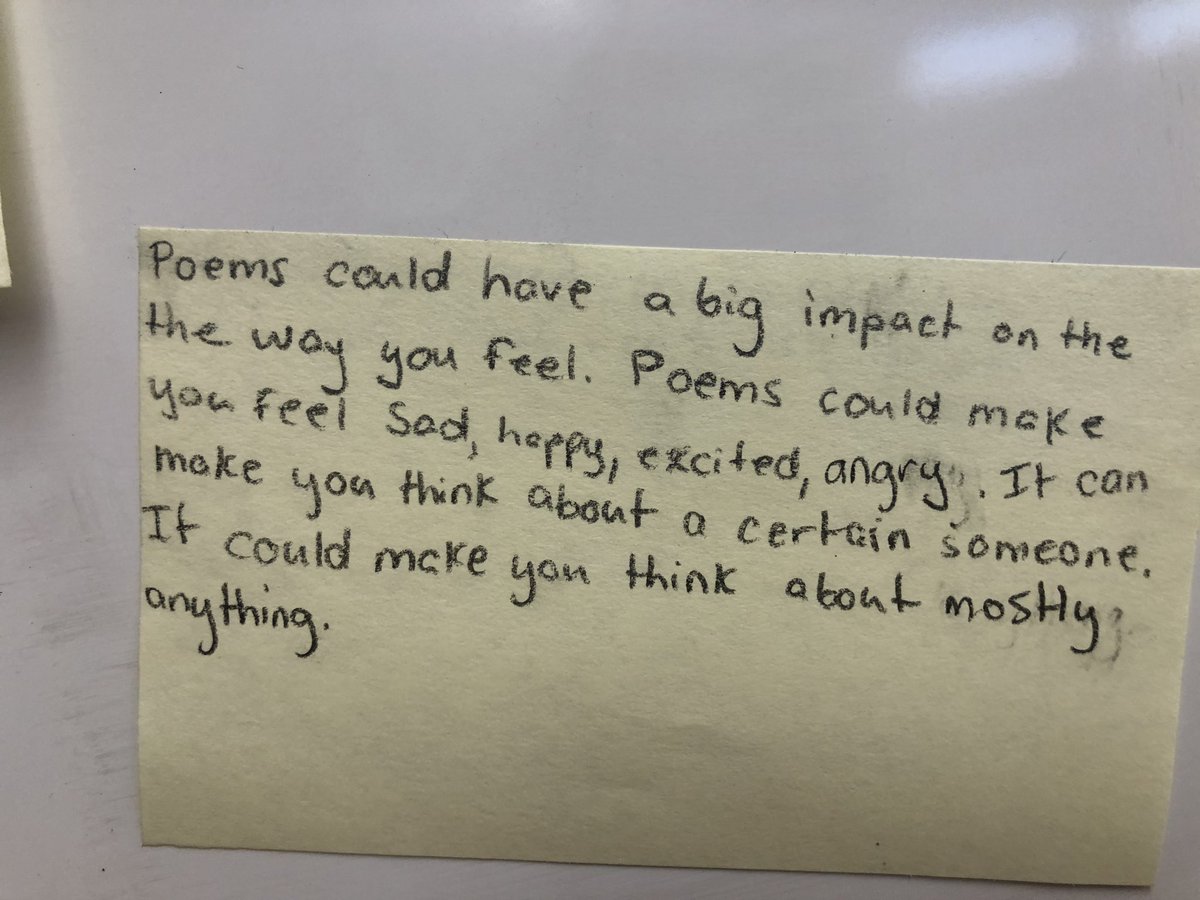 Poems could have a big impact on the
the way you feel. Poems could make
you feel sad, happy, excited, angry. It can
make you think about a certain someone.
It could make you think about mostly
anything.